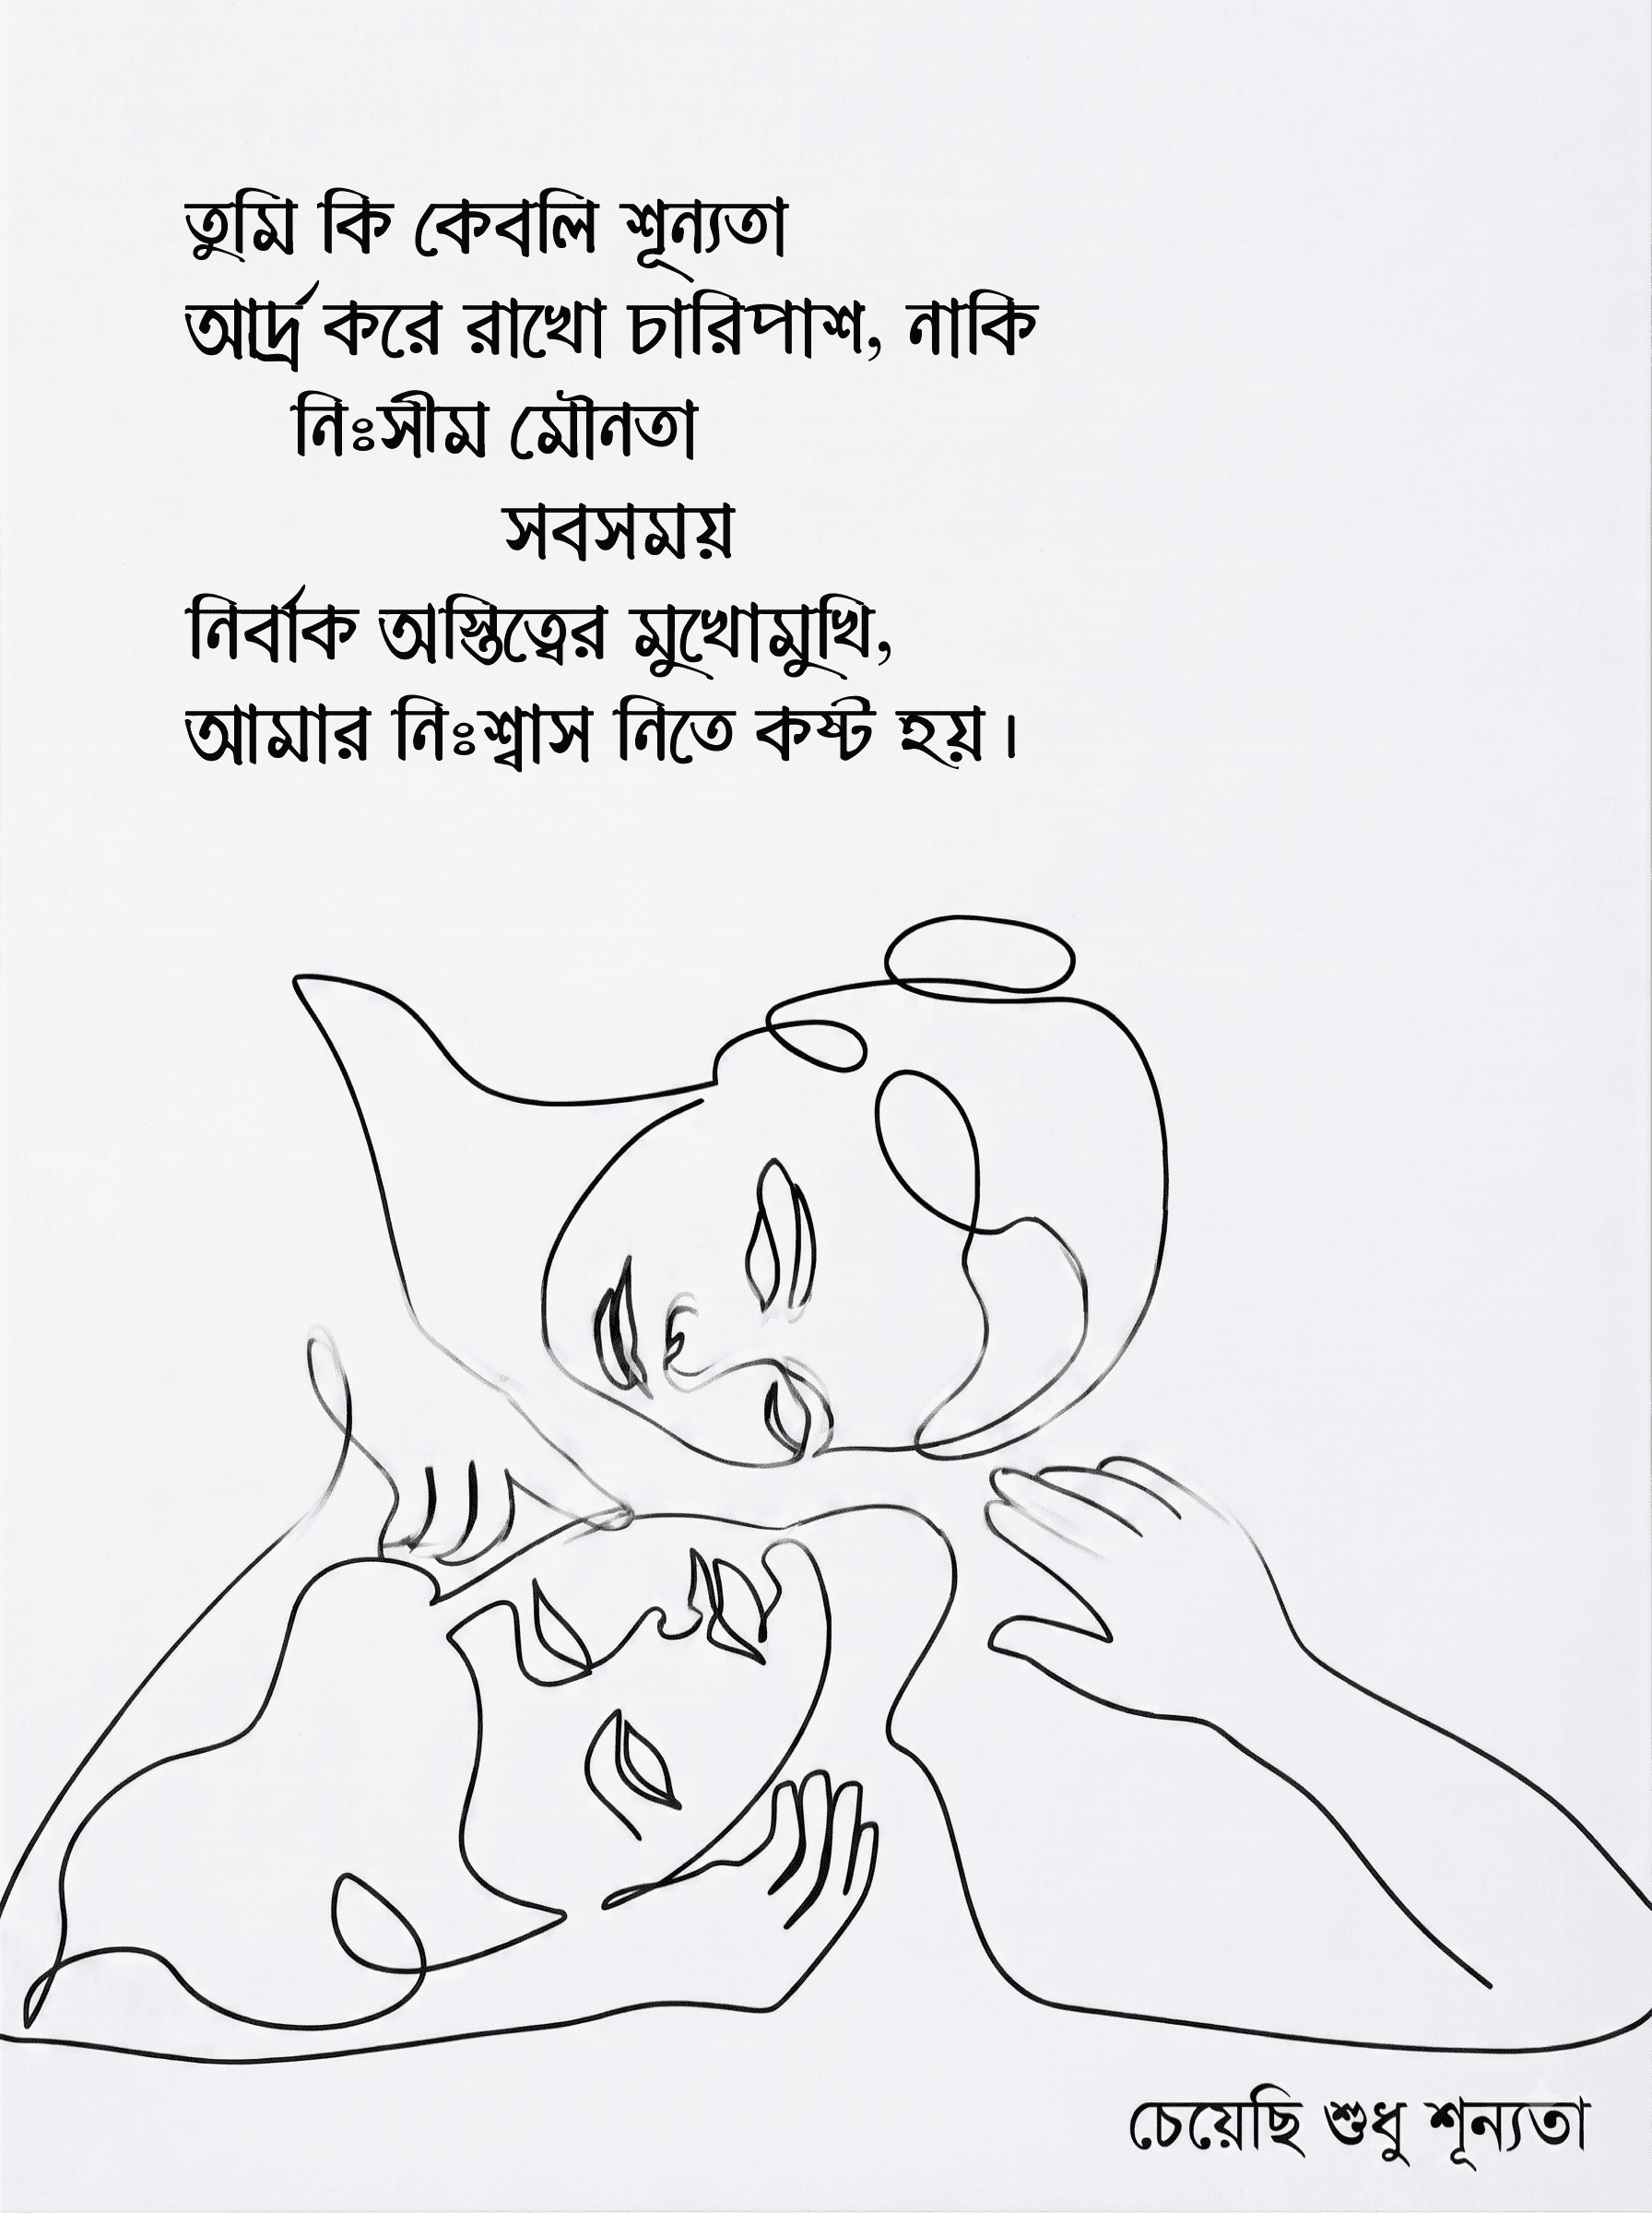 তুমি কি কেবলি শূন্যতা
আর্দ্র করে রাখো চারিপাশ, নাকি
নিঃসীম মৌনতা
সবসময়
নির্বাক অস্তিত্বের মুখোমুখি,
আমার নিঃশ্বাস নিতে কষ্ট হয়।
চেয়েছি শুধু শূন্যতা